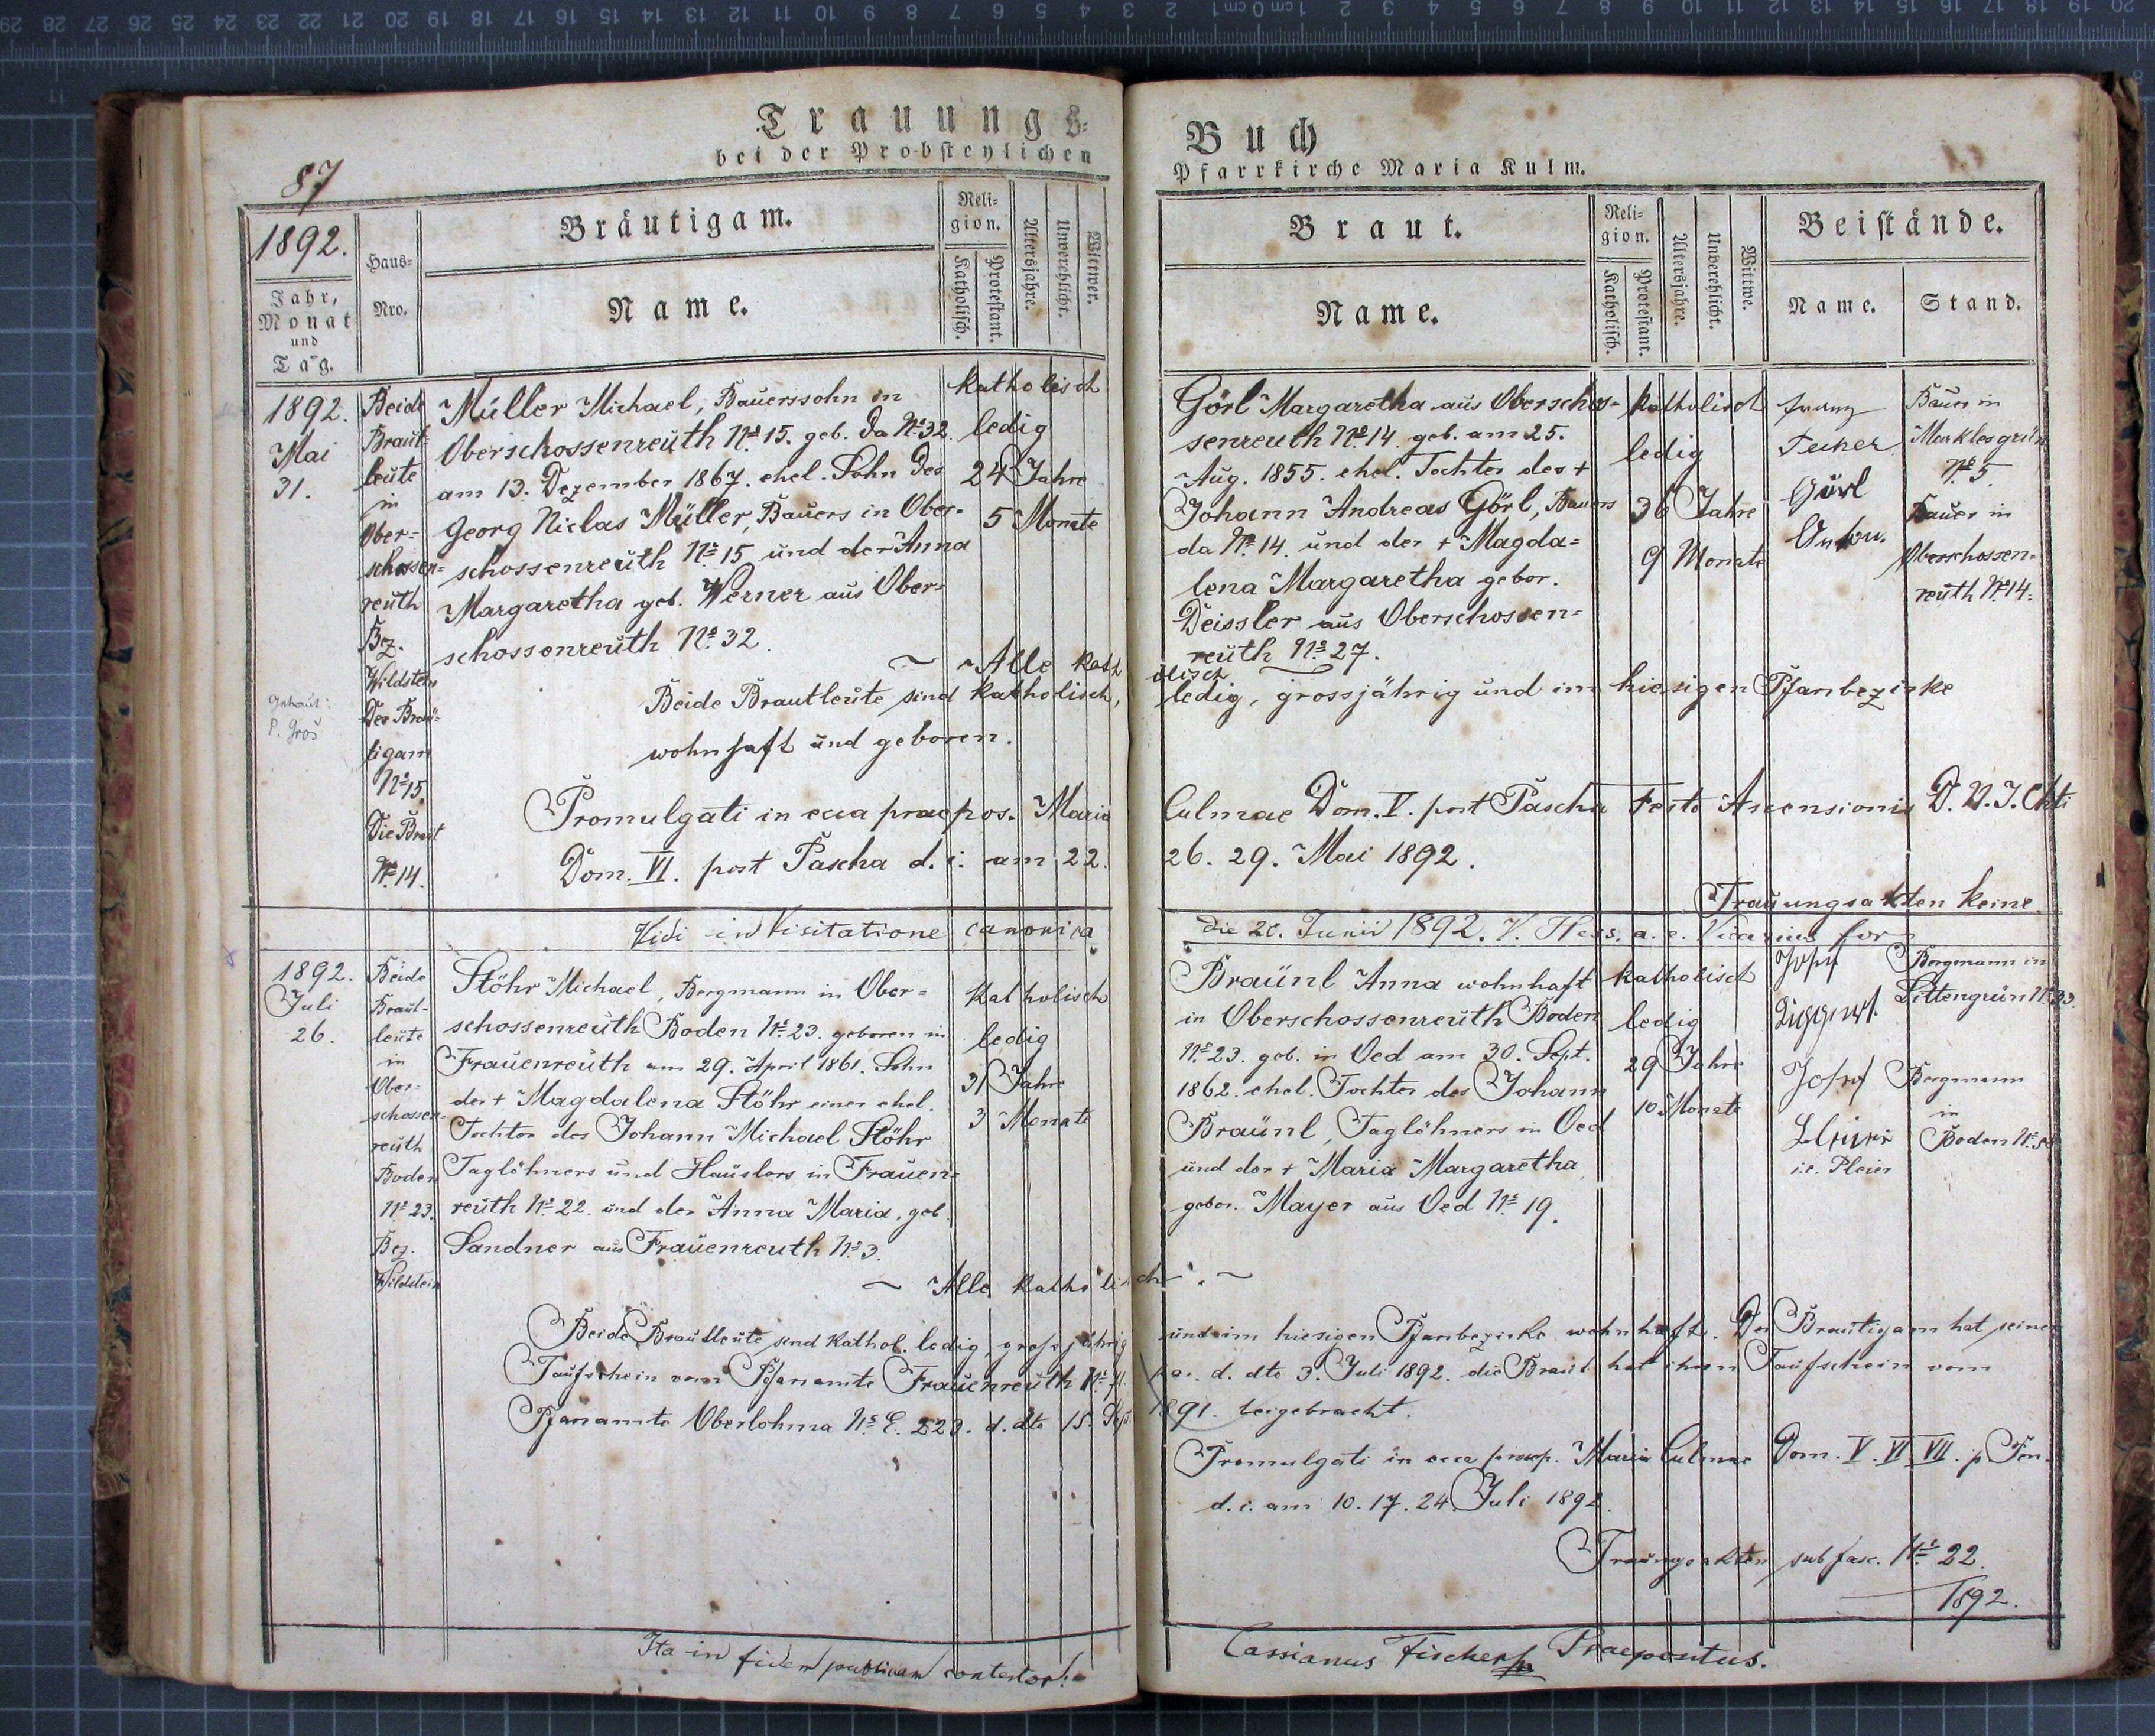 Trauungs-
bei der Probsteylichen
87
1892.
Jahr,
Monat
und
Tag.
Haus-
Nro.
Bräutigam.
Name.
Reli-
gion.
Katholisch.
Protestant.
Altersjahre.
Unverehlicht.
Wittwer.
1892.
Mai
31.
Getraut:
P. Gros
Beide
Braut-
leute
in
Ober-
schossen-
reuth
Bez.
Wildstein
Der Bräu-
tigam
No 15.
Die Braut
No 14.
Müller Michael, Bauerssohn in
Oberschossenreuth No 15. geb. da No 32.
am 13. Dezember 1867. ehel. Sohn des
Georg Niclas Müller, Bauers in Ober-
schossenreuth No 15 und der Anna
Margaretha geb. Werner aus Ober-
schossenreuth No 32.
katholisch
ledig
24 Jahre
5 Monate
~ Alle kath
Beide Brautleute sind katholisch,
wohnhaft und geboren.
Promulgati in ecca praepos. Maria
Dom. VI. post Pascha d. i. am 22.
Vidi in Visitatione canonica
1892.
Juli
26.
Beide
Braut-
leute
in
Ober-
schossen-
reuth
Boden
No 23.
Bez.
Wildstein
Stöhr Michael, Bergmann in Ober-
schossenreuth Boden No 23. geboren in
Frauenreuth am 29. April 1861. Sohn
der + Magdalena Stöhr einer ehel.
Tochter des Johann Michael Stöhr
Taglöhners und Häuslers in Frauen-
reuth No 22. und der Anna Maria, geb
Sandner aus Frauenreuth No 3.
katholisch
ledig
31 Jahre
3 Monate
~ Alle katholi
Beide Brautleute sind kathol. ledig, grossjährig
Taufschein vom Pfarramte Frauenreuth No
Pfarramte Oberlohma No E. 229. d. dto 15. Sept.
Ita in fidem publicam contestor:
Buch
Pfarrkirche Maria Kulm.
Braut.
Name.
Reli-
gion.
Katholisch.
Protestant.
Altersjahre.
Unverehlicht.
Wittwe.
Beistände.
Name.
Stand.
Görl Margaretha aus Oberschos-
senreuth No 14. geb. am 25.
Aug. 1855. ehel. Tochter des +
Johann Andreas Görl, Bauers
da No 14. und der + Magda-
lena Margaretha gebor.
Deissler aus Oberschossen-
reuth No 27.
katholisch
ledig
36 Jahre
9 Monate
Franz
Fecher
Görl
Anton.
Bauer in
Marklesgrün
No 5
Bauer in
Oberschossen-
reuth No 14.
olisch
ledig, grossjährig und im hiesigen Pfarrbezirke
Culmae Dom. V. post Pascha Festo Ascensionis D. N. J. Chti
26. 29. Mai 1892.
Trauungsakten keine.
die 20. Junii 1892. V. Hess. a. e. Vicarius for
Braünl Anna wohnhaft
in Oberschossenreuth Boden
No 23. geb. in Oed am 30. Sept.
1862. ehel. Tochter des Johann
Braünl, Taglöhners in Oed
und der + Maria Margaretha
gebor. Mayer aus Oed No 19.
katholisch
ledig
29 Jahre
10 Monate
Josef
Lippert.
Josef
Pleier
i.e. Pleier
Bergmann in
Littengrün No 33.
Bergmann
in
Boden No
ch. ~
und im hiesigen Pfarrbezirke wohnhaft. Der Bräutigam hat seinen
par. d. dto 3. Juli 1892. die Braut hat ihren Taufschein vom
1891. beigebracht.
Promulgati in ecca praep. Maria Culmae Dom. V. VI. VII. p Pen.
d. i. am 10. 17. 24. Juli 1892.
Traungsakten sub fasc. No 22.
1892.
Cassianus Fischer Praepositus.